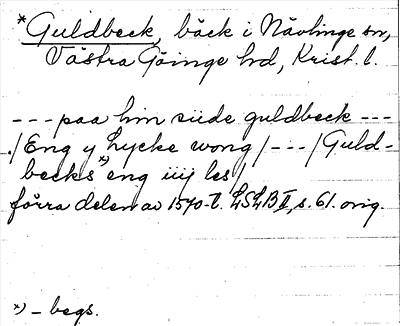 *Guldbeck, bäck i Nävlinge sn,
Västra Göinge hd, Krist. l.
--- paa hin siide guldbeck ---
./Eng y Lycke wong/---/Guld-
becks*) eng iiij les/
förra delen av 1570-t. LSLB II, s. 61. orig.
*) - begs.